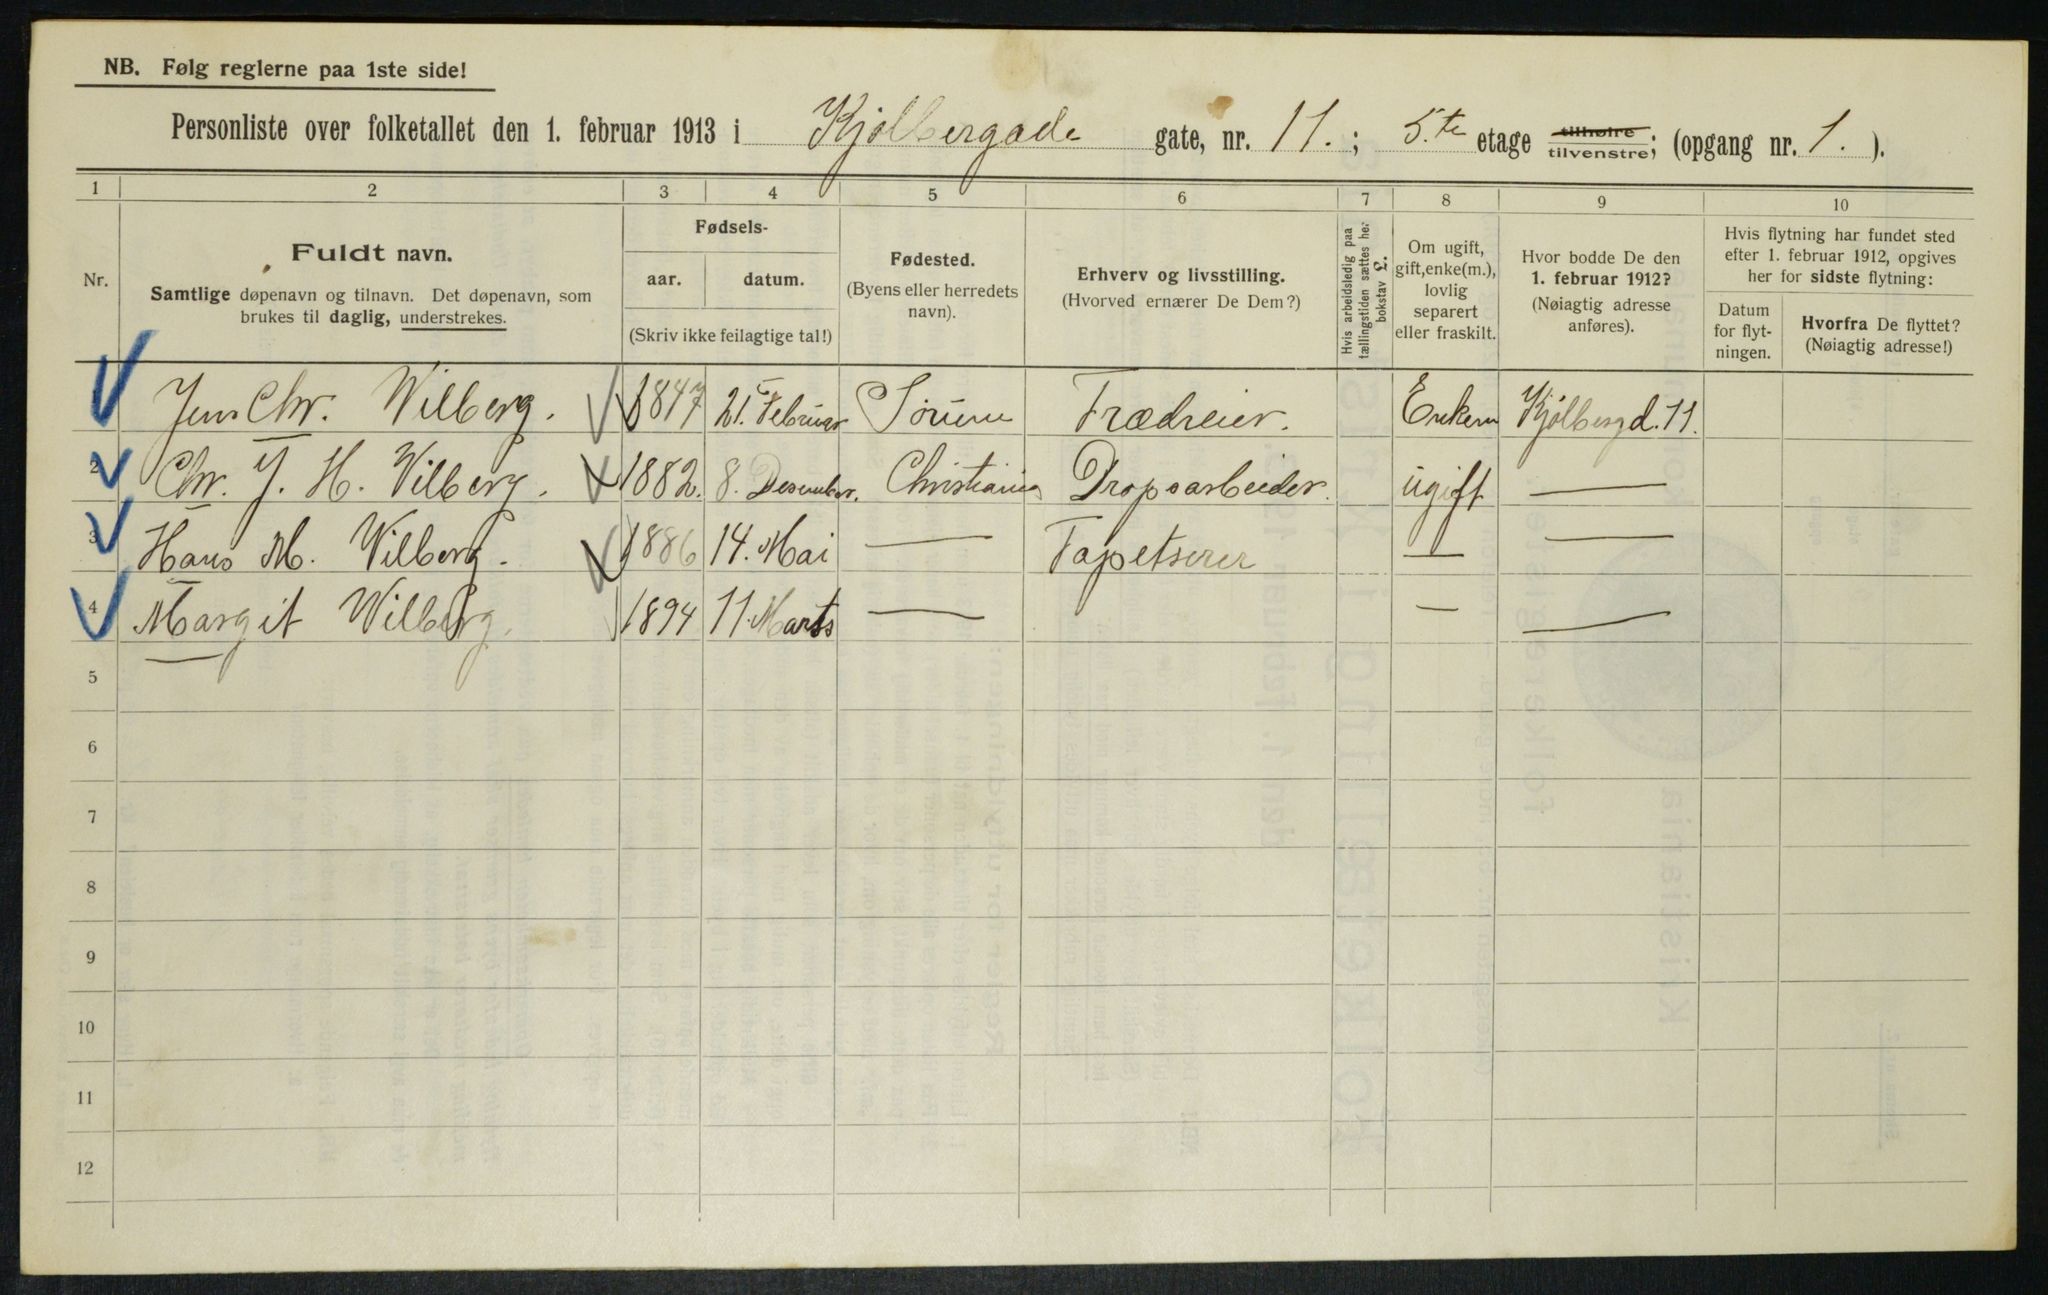 NB. Følg reglerne paa 1ste side!
Personliste over folketallet den 1. februar 1913 i Kjølbergade gate, nr. 11. ; 5.te etage tilhøire tilvenstre; (opgang nr. 1. ).
1 2 3 4 5 6 7 8 9 10
Nr.
Fuldt navn.
Samtlige døpenavn og tilnavn. Det døpenavn, som
brukes til daglig, understrekes.
Fødsels-
aar. datum.
(Skriv ikke feilagtige tal!)
Fødested.
(Byens eller herredets
navn).
Erhverv og livsstilling.
(Hvorved ernærer De Dem?)
Hvis arbeidsledig paa
tællingstiden sættes her
bokstav £.
Om ugift,
gift, enke(m.),
lovlig
separert
eller fraskilt.
Hvor bodde De den
1. februar 1912?
(Nøiagtig adresse
anføres).
Hvis flytning har fundet sted
efter 1. februar 1912, opgives
her for sidste flytning:
Datum
for flyt-
ningen.
Hvorfra De flyttet?
(Nøiagtig adresse!)
Jens Chr. Wilberg. 1847 21. Februar Sørum Trædreier. Enkem Kjølbergd. 11.
2 Chr. J. H. Wilberg. 1882. 8. Desember. Christiania Dropsarbeider. ugift —
3 Hans M. Wilberg. 1886 14. Mai — Tapetserer — —
4 Margit Wilberg. 1894 11. Marts — — —
5
6
7
8
9
10
11
12